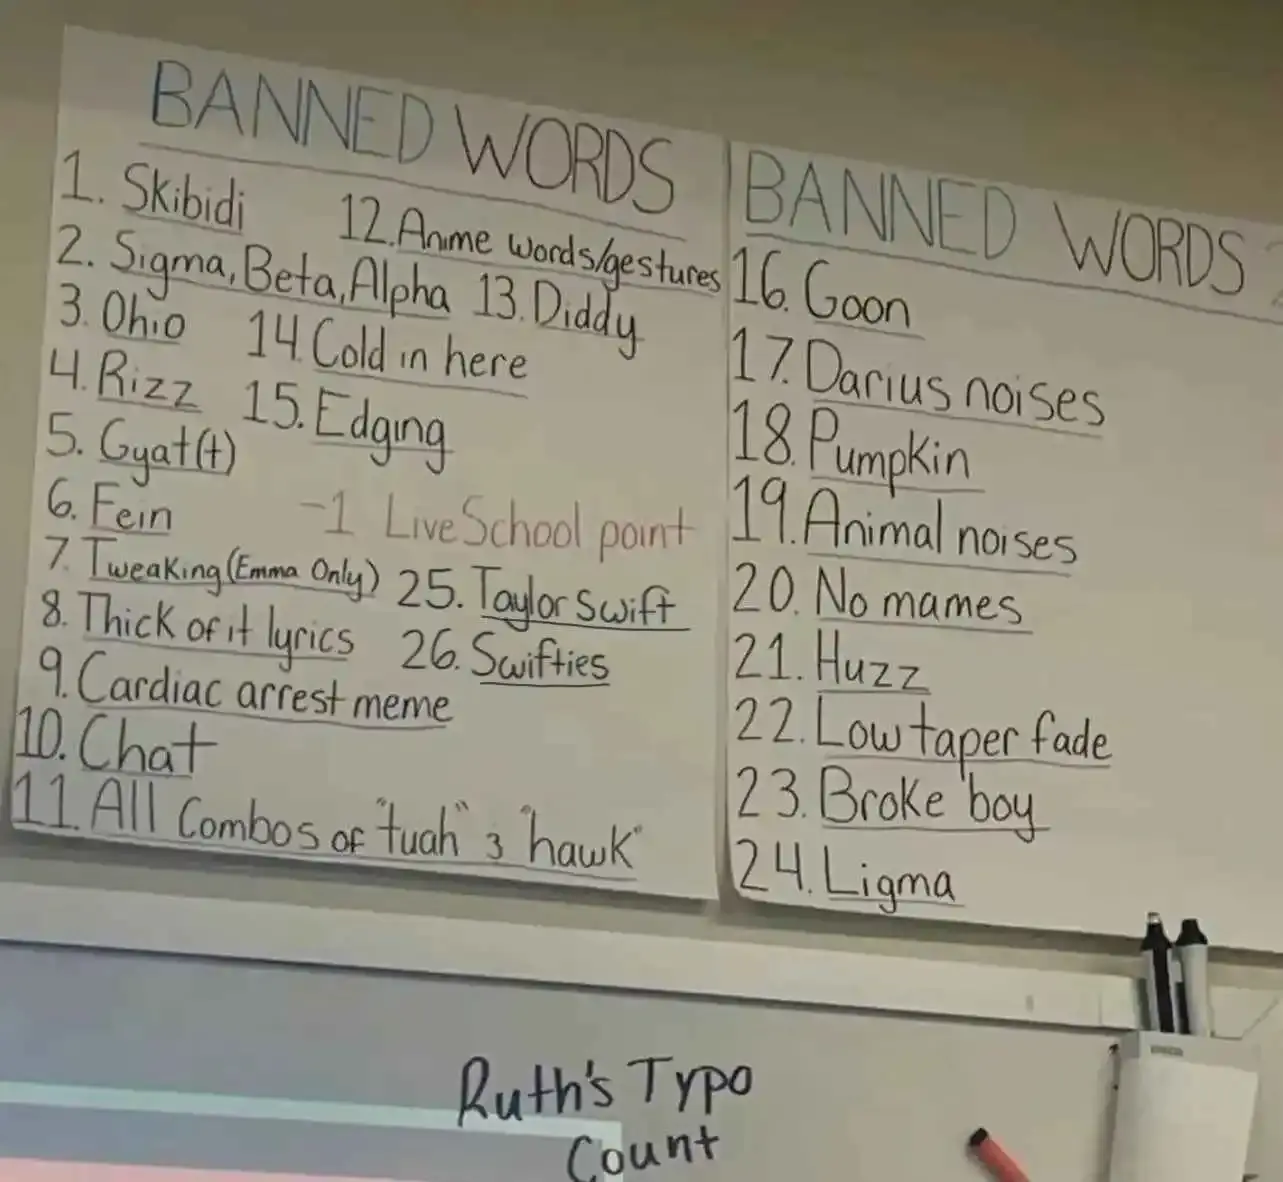 BANNED WORDS
1. Skibidi
2. Sigma, Beta, Alpha
3. Ohio
4. Rizz
5. Gyat(t)
6. Fein
7. Tweaking (Emma Only)
8. Thick of it lyrics
9. Cardiac arrest meme
10. Chat
11. All Combos of "tuah" & "hawk"
12. Anime words/gestures
13. Diddy
14. Cold in here
15. Edging
-1 LiveSchool point
25. Taylor Swift
26. Swifties
BANNED WORDS
16. Goon
17. Darius noises
18. Pumpkin
19. Animal noises
20. No mames
21. Huzz
22. Low taper fade
23. Broke boy
24. Ligma
Ruth's Typo
Count